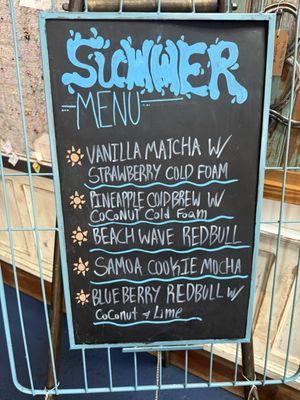 SUMMER
MENU
VANILLA MATCHA W/
STRAWBERRY COLD FOAM
PINEAPPLE COLD BREW W/
COCONUT COLD FOAM
BEACH WAVE REDBULL
SAMOA COOKIE MOCHA
BLUEBERRY REDBULL W/
COCONUT & LIME